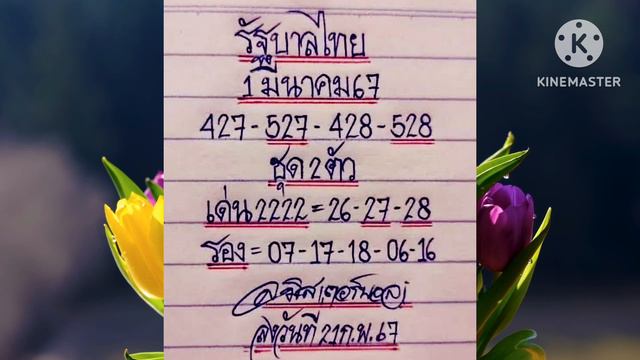 รัฐบาลไทย
1 มีนาคม 67
427-527-428-528
ชุด 2 ตัว
เด่น 2222 = 26-27-28
รอง = 07-17-18-06-16
ลงวันที่ 21 ก.พ. 67
KINEMASTER